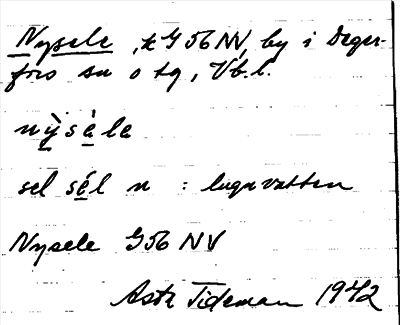 Nysele, k G 56 NV, by i Deger-
fors sn o tg, Vb. l.
nỳsè̱le
sel sé̱l n : lugnvatten
Nysele G56 NV
Astr Tideman 1942